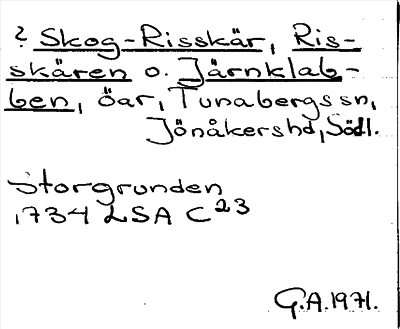 ? Skog-Risskär, Ris-
skären o. Järnklab-
ben, öar, Tunabergs sn,
Jönåkers hd, Södl.
Storgrunden
1734 LSA C23
G.A. 1971.